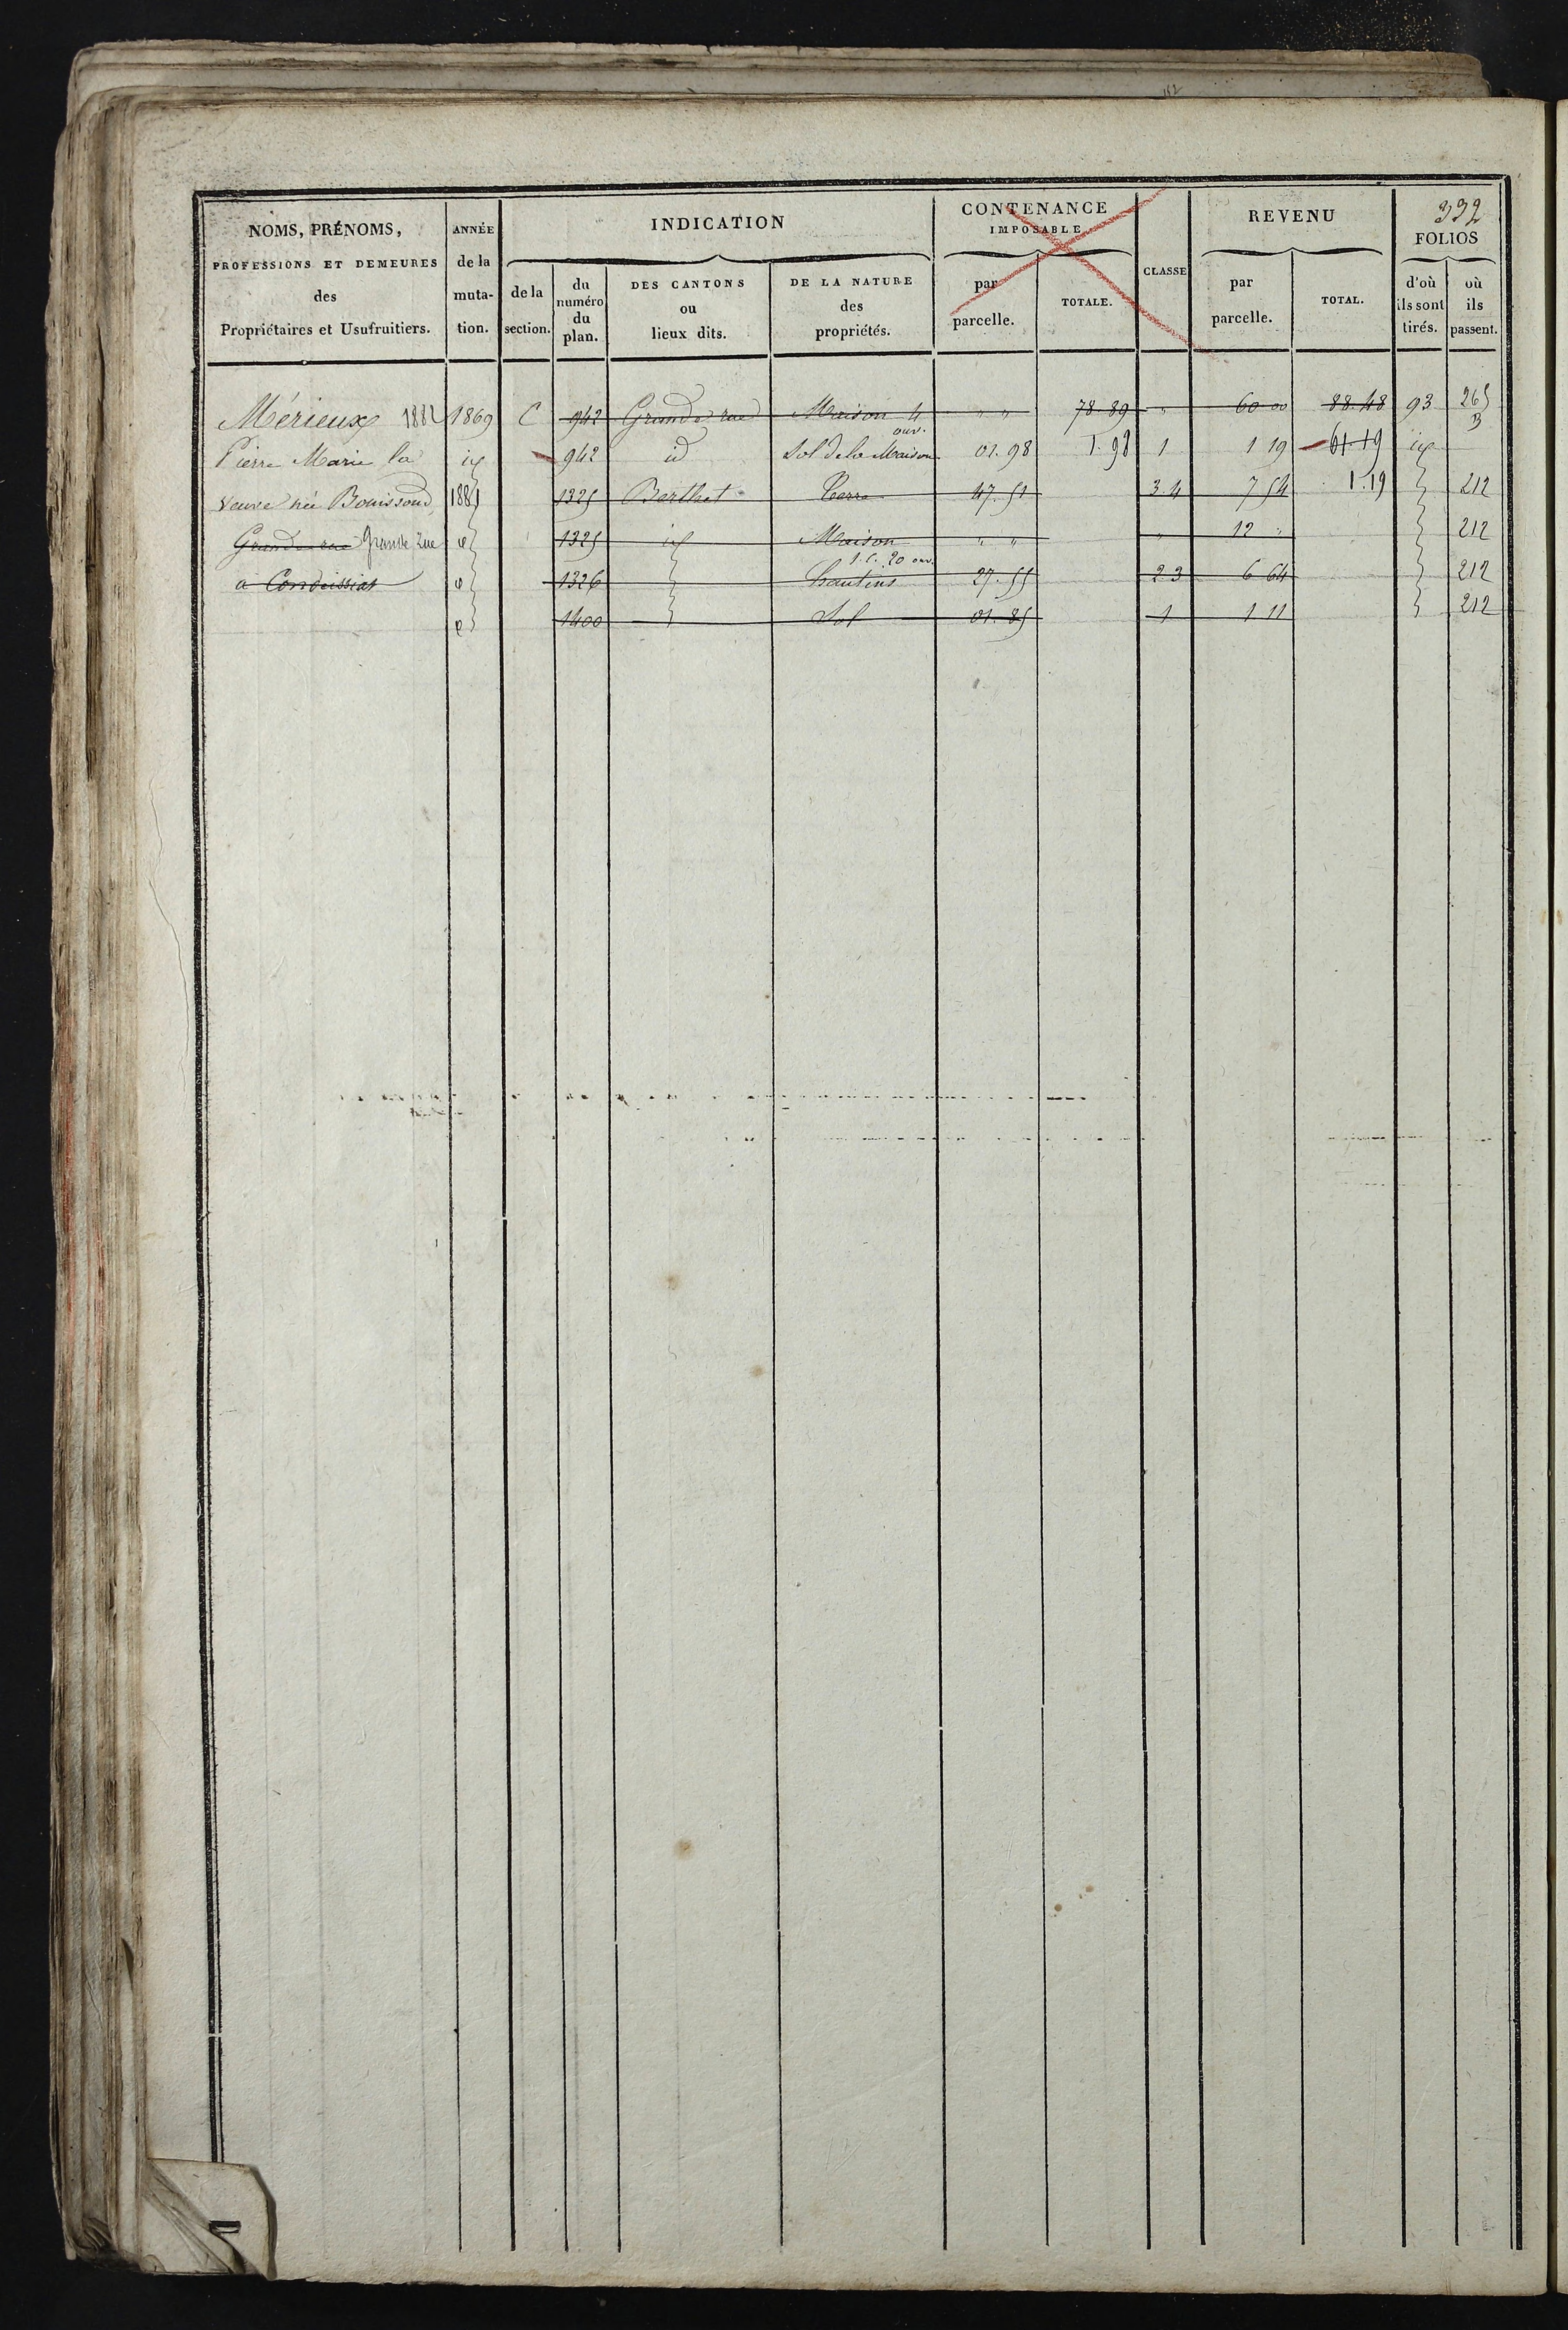 112
332
NOMS, PRÉNOMS,
PROFESSIONS ET DEMEURES
des
Propriétaires et Usufruitiers.
ANNÉE
de la
muta-
tion.
INDICATION
de la
section.
du
numéro
du
plan.
DES CANTONS
ou
lieux dits.
DE LA NATURE
des
propriétés.
CONTENANCE
IMPOSABLE
par
parcelle.
TOTALE.
CLASSE
REVENU
par
parcelle.
TOTAL.
FOLIOS
d'où
ils sont
tirés.
où
ils
passent.
Mérieux 1882 1869 C 942 Grande rue Maison 4 ouv. " " 78.89 " 60 00 88.48 93 265 B
Pierre Marie la id 942 id Sol de la Maison 01.98 1.98 1 1 19 61.19 id
veuve née Bouissoud 1881 1325 Berthet Terre 47.51 3.4 7 54 1.19 212
Grande rue Grande Rue 1325 id Maison " " " 12 " 212
à Condeissiat 1326 1.C. 20 ouv. hautins 27.55 2 3 6 64 212
1400 Sol 01.85 1 1 11 212